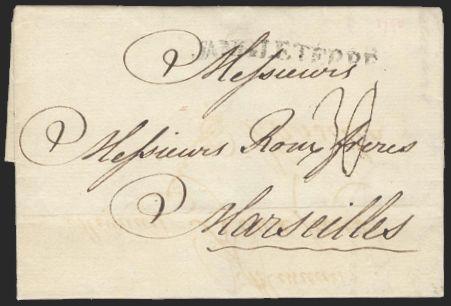 D'ANGLETERRE
Messieurs
Messieurs Roux freres
Marseilles